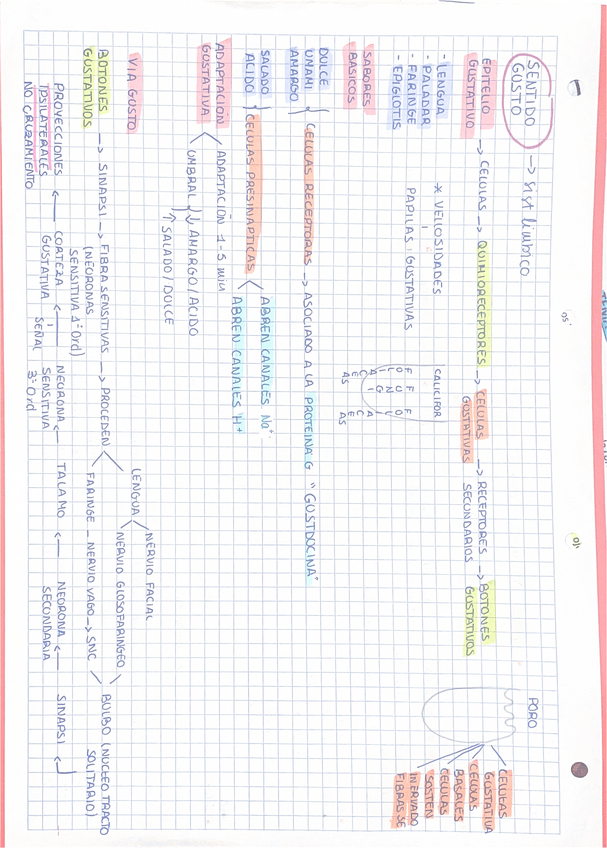 SENTIDO
GUSTO → sist límbico
EPITELIO
GUSTATIVO → CELULAS → QUIMIORECEPTORES → CELULAS
GUSTATIVAS → RECEPTORES
SECUNDARIOS → BOTONES
GUSTATIVOS
- LENGUA
- PALADAR
- FARINGE
- EPIGLOTIS
* VELLOSIDADES
PAPILAS GUSTATIVAS
CALICIFOR
FUNGI
FOLIACEAS
PORO
CELULAS
GUSTATIVA
CELULAS
BASALES
CELULAS
SOSTEN
INERVADO
FIBRAS SE
SABORES
BASICOS
DULCE
UNAMI
AMARGO } CELULAS RECEPTORAS → ASOCIADO A LA PROTEINA G "GUSTDUCINA"
SALADO
ACIDO } CELULAS PRESINAPTICAS < ABREN CANALES Na+
ABREN CANALES H+
ADAPTACION
GUSTATIVA < ADAPTACION 1-5 min
UMBRAL ↓ AMARGO/ACIDO
↑ SALADO/DULCE
VIA GUSTO
BOTONES
GUSTATIVOS → SINAPSI → FIBRA SENSITIVAS → PROCEDEN
(NEURONAS
SENSITIVA 1º Ord)
LENGUA < NERVIO FACIAL
NERVIO GLOSOFARINGEO
FARINGE - NERVIO VAGO → SNC
BULBO (NUCLEO TRACTO
SOLITARIO)
PROYECCIONES
IPSILATERALES
NO CRUZAMIENTO ← CORTEZA
GUSTATIVA
SEÑAL ← NEURONA
SENSITIVA
3º Ord ← TALAMO ← NEURONA
SECUNDARIA ← SINAPSI